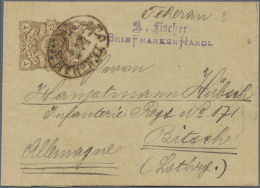 Teheran
A. Fischer
BRIEFMARKENHANDL.
Herrn
Hauptmann Hübsch
Infanterie Regt No 171
Bitsch
Allemagne
(Lothrg.)